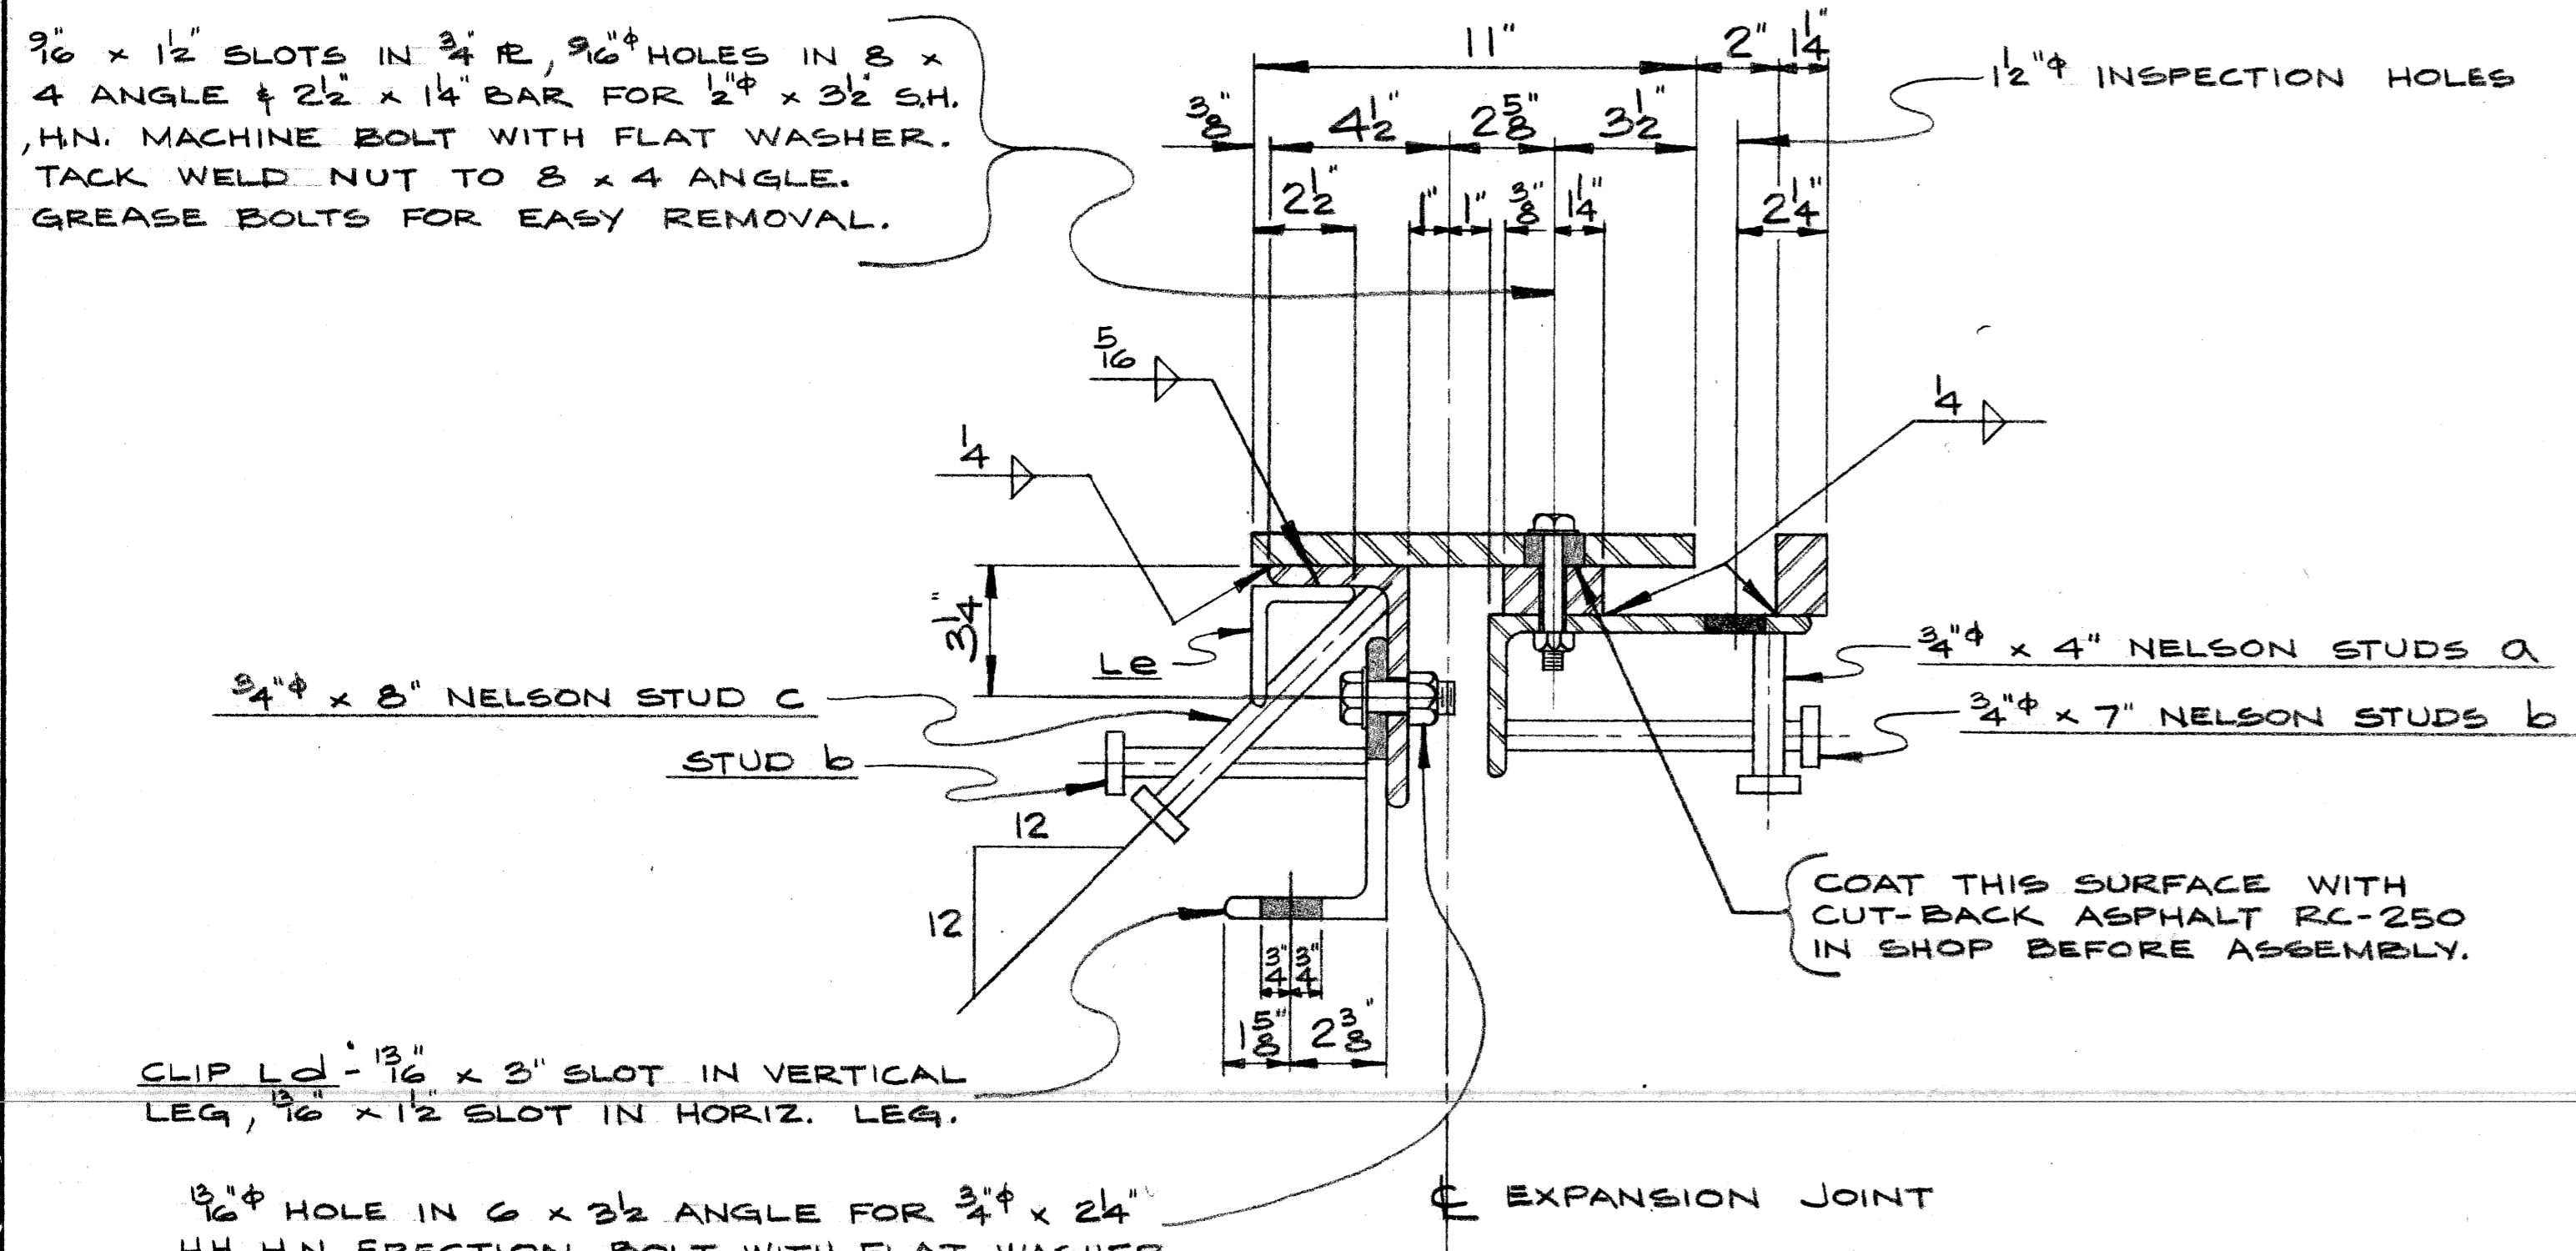 9/16" x 1 1/2" SLOTS IN 3/4" PL, 9/16"φ HOLES IN 8 x
4 ANGLE & 2 1/2" x 1 1/4" BAR FOR 1/2"φ x 3 1/2" S.H.
, H.N. MACHINE BOLT WITH FLAT WASHER.
TACK WELD NUT TO 8 x 4 ANGLE.
GREASE BOLTS FOR EASY REMOVAL.
11" 2" 1 1/4"
1 1/2"φ INSPECTION HOLES
3/8" 4 1/2" 2 5/8" 3 1/2"
2 1/2" 1" 1" 3/8" 1 1/4" 2 1/4"
5/16
1/4
1/4
3 1/4"
Le
3/4"φ x 8" NELSON STUD C
STUD b
3/4"φ x 4" NELSON STUDS a
3/4"φ x 7" NELSON STUDS b
12
12
COAT THIS SURFACE WITH
CUT-BACK ASPHALT RC-250
IN SHOP BEFORE ASSEMBLY.
3/4" 3/4"
1 5/8" 2 3/8"
CLIP Ld - 13/16" x 3" SLOT IN VERTICAL
LEG, 13/16" x 1 1/2" SLOT IN HORIZ. LEG.
13/16"φ HOLE IN 6 x 3 1/2 ANGLE FOR 3/4"φ x 2 1/4"
H.H. H.N. ERECTION BOLT WITH FLAT WASHER
℄ EXPANSION JOINT